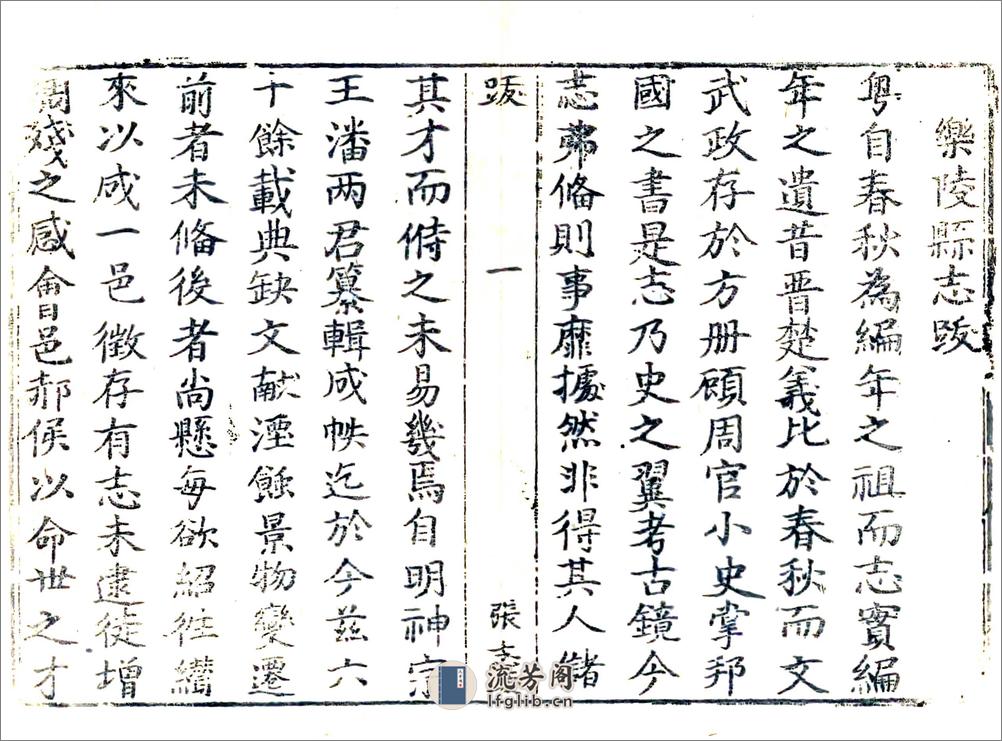 樂陵縣志跋
粤自春秋為編年之祖而志實編
年之遺昔晋楚義比於春秋而文
武政存於方册頋周官小史掌邦
國之書是志乃史之翼考古鏡今
志弗俻則事靡據然非得其人儲
跋 一 張
其才而偫之未易幾焉自明神宗
王潘两君纂輯成帙迄於今兹六
十餘載典缺文献湮餘景物變遷
前者未俻後者尚懸每欲紹徃續
來以成一邑徵存有志未逮徒增
周殘之感會邑郝侯以命世之才
流芳阁
lfglib.cn